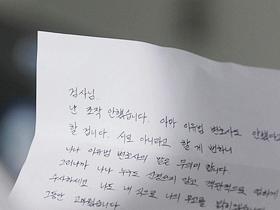 검사님
난 조작 안했습니다. 아마 이유범 변호사도 안했다고
할 겁니다. 서로 아니라고 할 게 뻔하니
나나 이유범 변호사의 말은 무의미 합니다
그러니까 나나 누구도 신뢰하지 말고 객관적으로
수사하세요 나도 내 식으로 나의 무고를
그동안 고마웠습니다